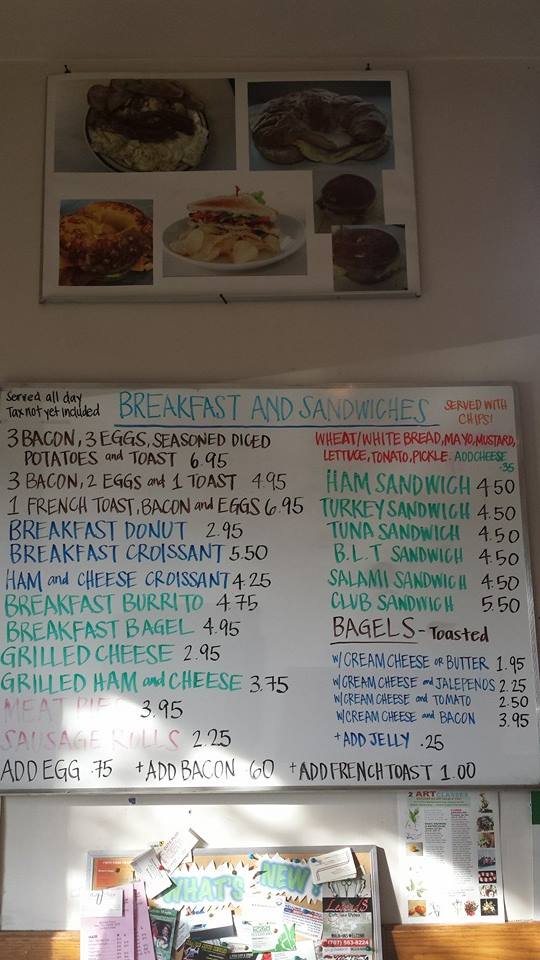 Served all day
Tax not yet included
BREAKFAST AND SANDWICHES
SERVED WITH
CHIPS!
3 BACON, 3 EGGS, SEASONED DICED
POTATOES and TOAST 6.95
3 BACON, 2 EGGS and 1 TOAST 4.95
1 FRENCH TOAST, BACON and EGGS 6.95
BREAKFAST DONUT 2.95
BREAKFAST CROISSANT 5.50
HAM and CHEESE CROISSANT 4.25
BREAKFAST BURRITO 4.75
BREAKFAST BAGEL 4.95
GRILLED CHEESE 2.95
GRILLED HAM and CHEESE 3.75
MEAT PIES 3.95
SAUSAGE ROLLS 2.25
WHEAT/WHITE BREAD, MAYO, MUSTARD,
LETTUCE, TOMATO, PICKLE. ADD CHEESE
.35
HAM SANDWICH 4.50
TURKEY SANDWICH 4.50
TUNA SANDWICH 4.50
B.L.T SANDWICH 4.50
SALAMI SANDWICH 4.50
CLUB SANDWICH 5.50
BAGELS - Toasted
W/CREAM CHEESE OR BUTTER 1.95
W/CREAM CHEESE and JALEPENOS 2.25
W/CREAM CHEESE and TOMATO 2.50
W/CREAM CHEESE and BACON 3.95
+ADD JELLY .25
ADD EGG .75 +ADD BACON .60 +ADD FRENCH TOAST 1.00
2 ART CLASSES
WHAT'S NEW?
(707) 563-8224